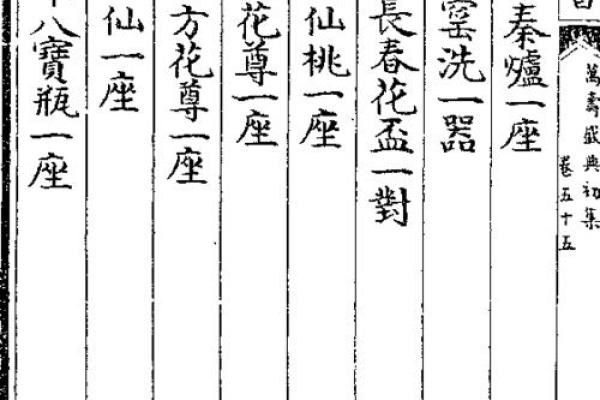 萬壽盛典初集
卷五十五
秦爐一座
窰洗一器
長春花盃一對
仙桃一座
花尊一座
方花尊一座
仙一座
八寶瓶一座